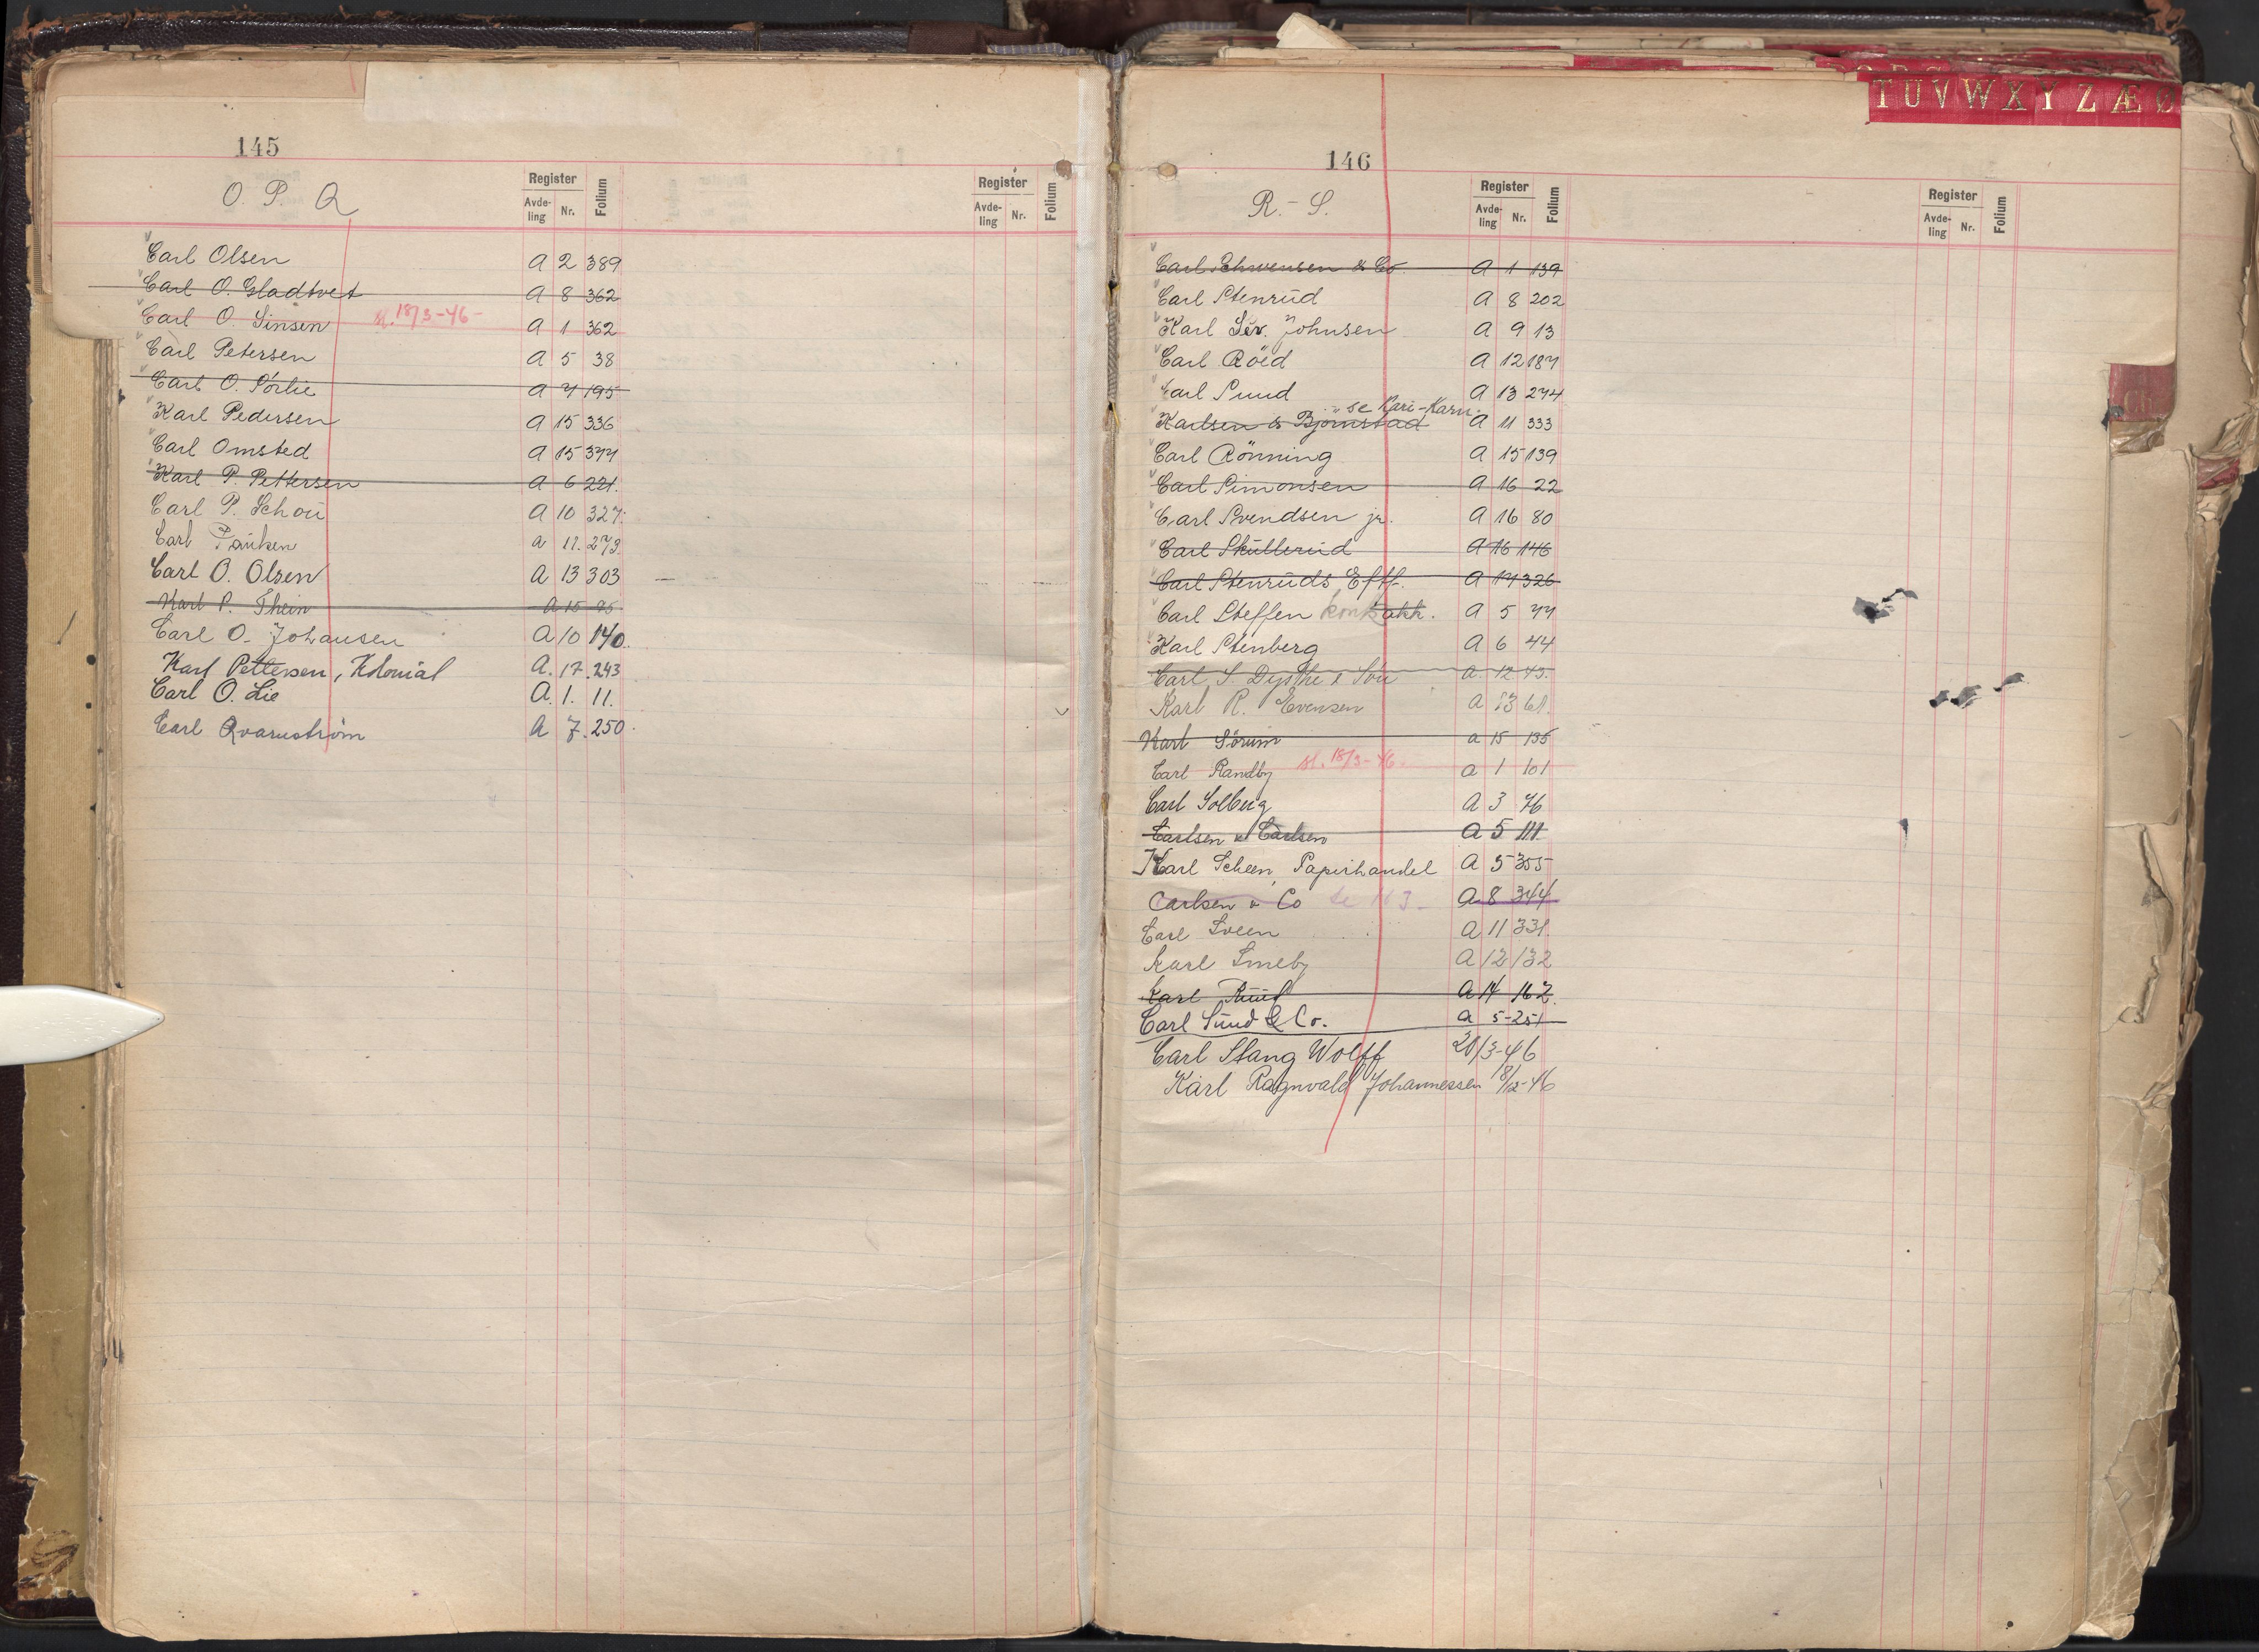 145
O. P. Q
Register
Avde-
ling
Nr.
Folium
Register
Avde-
ling
Nr.
Folium
Carl Olsen A 2 389
Carl O. Gladtvet A 8 362
Carl O. Sinsen sl. 18/3-46- A 1 362
Carl Petersen A 5 38
Carl O. Sörlie A 7 195
Karl Pedersen A 15 336
Carl Omsted A 15 377
Karl P. Pettersen A 6 221.
Carl P. Schou A 10 327.
Carl A 11. 273.
Carl O. Olsen A 13 303
Karl P. Thein A 15 95
Carl O. Johansen A 10 140.
Karl Pettersen, Kolonial A. 17. 243
Carl O. Lie A. 1. 11.
Carl Qvarnström A 7. 250.
TUVWXYZÆØ
146
R.- S.
Register
Avde-
ling
Nr.
Folium
Register
Avde-
ling
Nr.
Folium
Carl Schwensen & Co. A 1 139
Carl Stenrud A 8 202
Karl Sev. Johnsen A 9 13
Carl Röed A 12 187
Carl Sund A 13 274
se Kari-Karn.
Karlsen & Björnstad A 11 333
Carl Rönning A 15 139
Carl Simonsen A 16 22
Carl Svendsen jr. A 16 80
Carl Skullerud A 16 146
Carl Stenruds Eftf. A 17 326
Carl Steffen A 5 77
Karl Stenberg A 6 44
Carl S. Dysthe & Sön A. 12 43.
Karl R. Evensen A 13 61.
Karl Sörum A 15 135
Carl Randby sl. 18/3-46. A 1 101
Carl Solberg A 3 76
Carlsen & Carlsen A 5 111.
Karl Scheen, Papirhandel A 5 355
Carlsen & Co se 163- A 8 344
Carl Sveen A 11 331.
Karl Smeby A 12 132
Karl Ruud A 14 162.
Carl Sund & Co. A 5-251
Carl Stang Wolff 20/3-46
Karl Ragnvald Johannessen 18/2-46